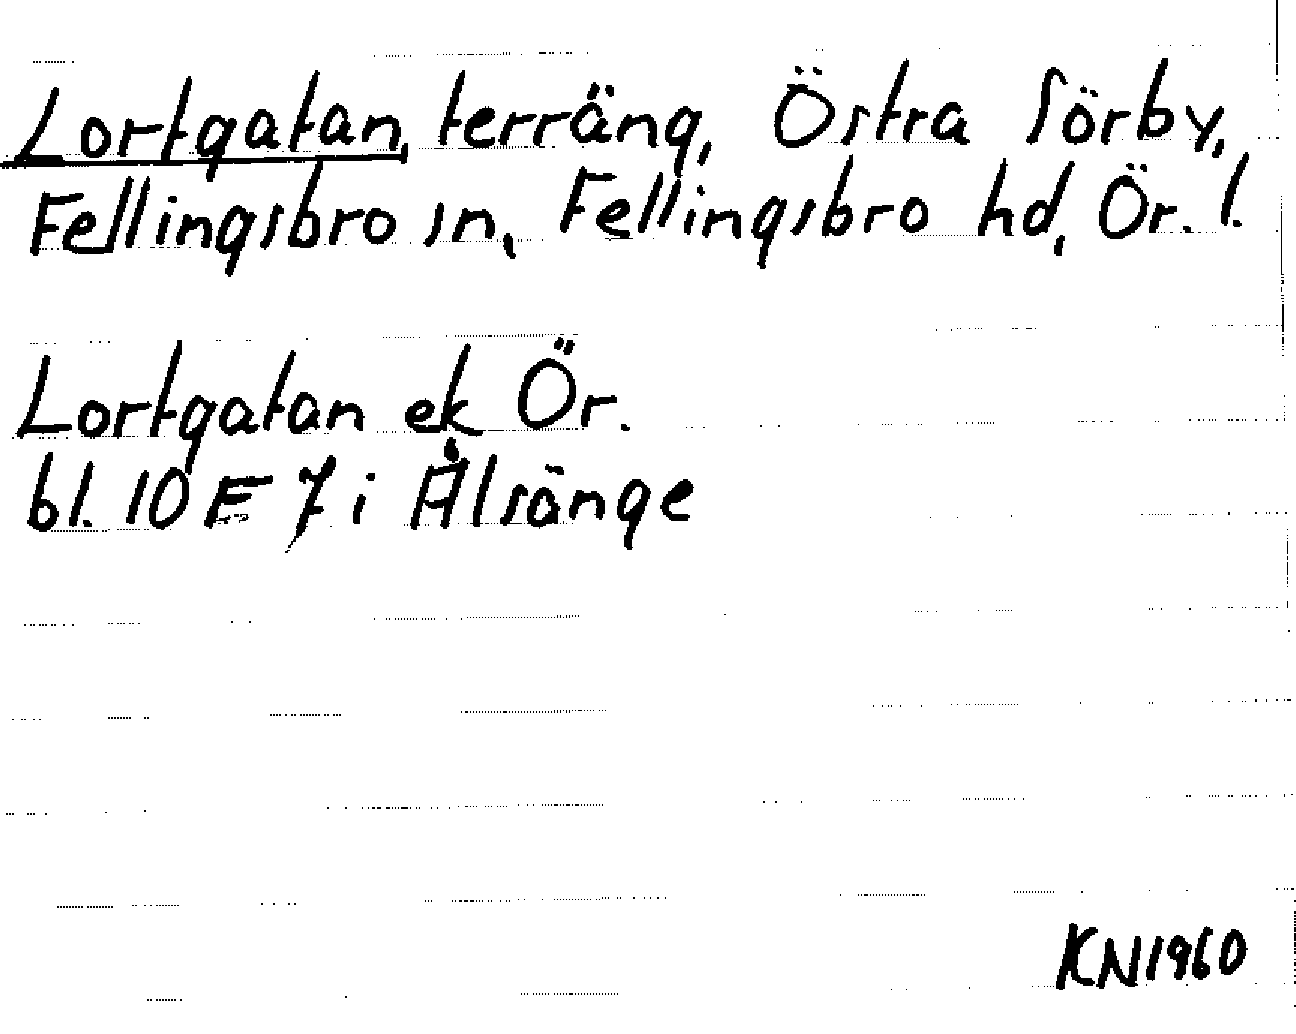 Lortgatan, terräng, Östra Sörby,
Fellingsbro sn, Fellingsbro hd, Ör. l.
Lortgatan ek Ör.
bl. 10 F 7 i Älsänge
KN1960